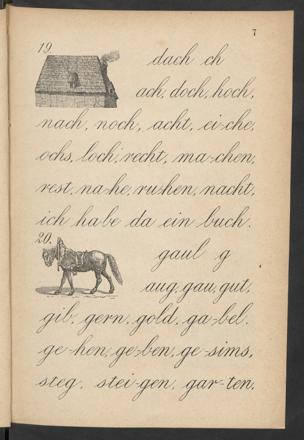 7
19. dach ch
ach, doch, hoch,
nach, noch, acht, ei-che,
ochs, loch, recht, ma-chen,
rest, na-he, ru-hen, nacht,
ich habe da ein buch.
20. gaul g
aug, gau, gut,
gib, gern, gold, ga-bel.
ge-hen, ge-ben, ge-sims,
steg, stei-gen, gar-ten.